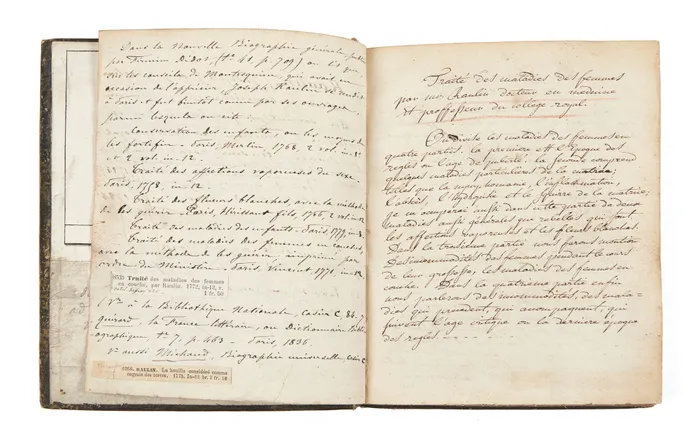 Dans la Nouvelle Biographie générale, publiée
par Firmin Didot, (t° 41 p. 709) on lit que
les conseils de Montesquieu, qui avait eu
occasion de l'apprécier, Joseph Raulin se rendit
à Paris et fut bientôt connu par ses ouvrages,
parmi lesquels on cite :
Conservation des enfants, ou les moyens
de les fortifier. Paris, Merlin, 1768, 2 vol. in-12
et 2 vol. in-12.
Traité des affections vaporeuses du sexe
Paris, 1758, in-12.
Traité des fleurs blanches, avec la méthode
de les guérir. Paris Hérissant fils, 1766, 2 vol. in-12
Traité des maladies des enfants. Paris, in-12
Traité des maladies des femmes en couches,
avec la méthode de les guérir, imprimé par
ordre du Ministère. Paris, Vincent, 1771, in-12
Traité des maladies des femmes
en couche, par Raulin. 1772, in-12, v.
1 fr. 50
(Vr à la Bibliothèque Nationale, Casier C. 86.
Quérard, la France littéraire, ou Dictionnaire Biblio-
graphique, t° 7, p. 463 - Paris, 1836.
Vr aussi Michaud, Biographie universelle, Casier C.
RAULIN. La houille considérée comme
engrais des terres.
Traité des maladies des femmes
par mr Raulin docteur en medecine
et proffesseur du college royal.
On divise les maladies des femmes en
quatre parties. la premiere est l'époque des
regles ou l'age de puberté. la seconde comprend
quelques maladies particulieres de la matrice;
telles que la nymphomanie, l'inflammation,
l'ascite, l'hydropisie et le squirre de la matrice;
je m'occuperai aussi dans cette partie de deux
maladies aussi générales que rebelles qui sont
les affections vaporeuses et les fleurs blanches.
Dans la troisieme partie nous ferons mention
des incommodités des femmes pendant le cours
de leur grossesse, les maladies des femmes en
couche. Dans la quatrieme partie enfin
nous parlerons des incommodités, des mala-
dies qui precedent, qui accompagnent, qui
suivent l'age critique ou la derniere époque
des regles